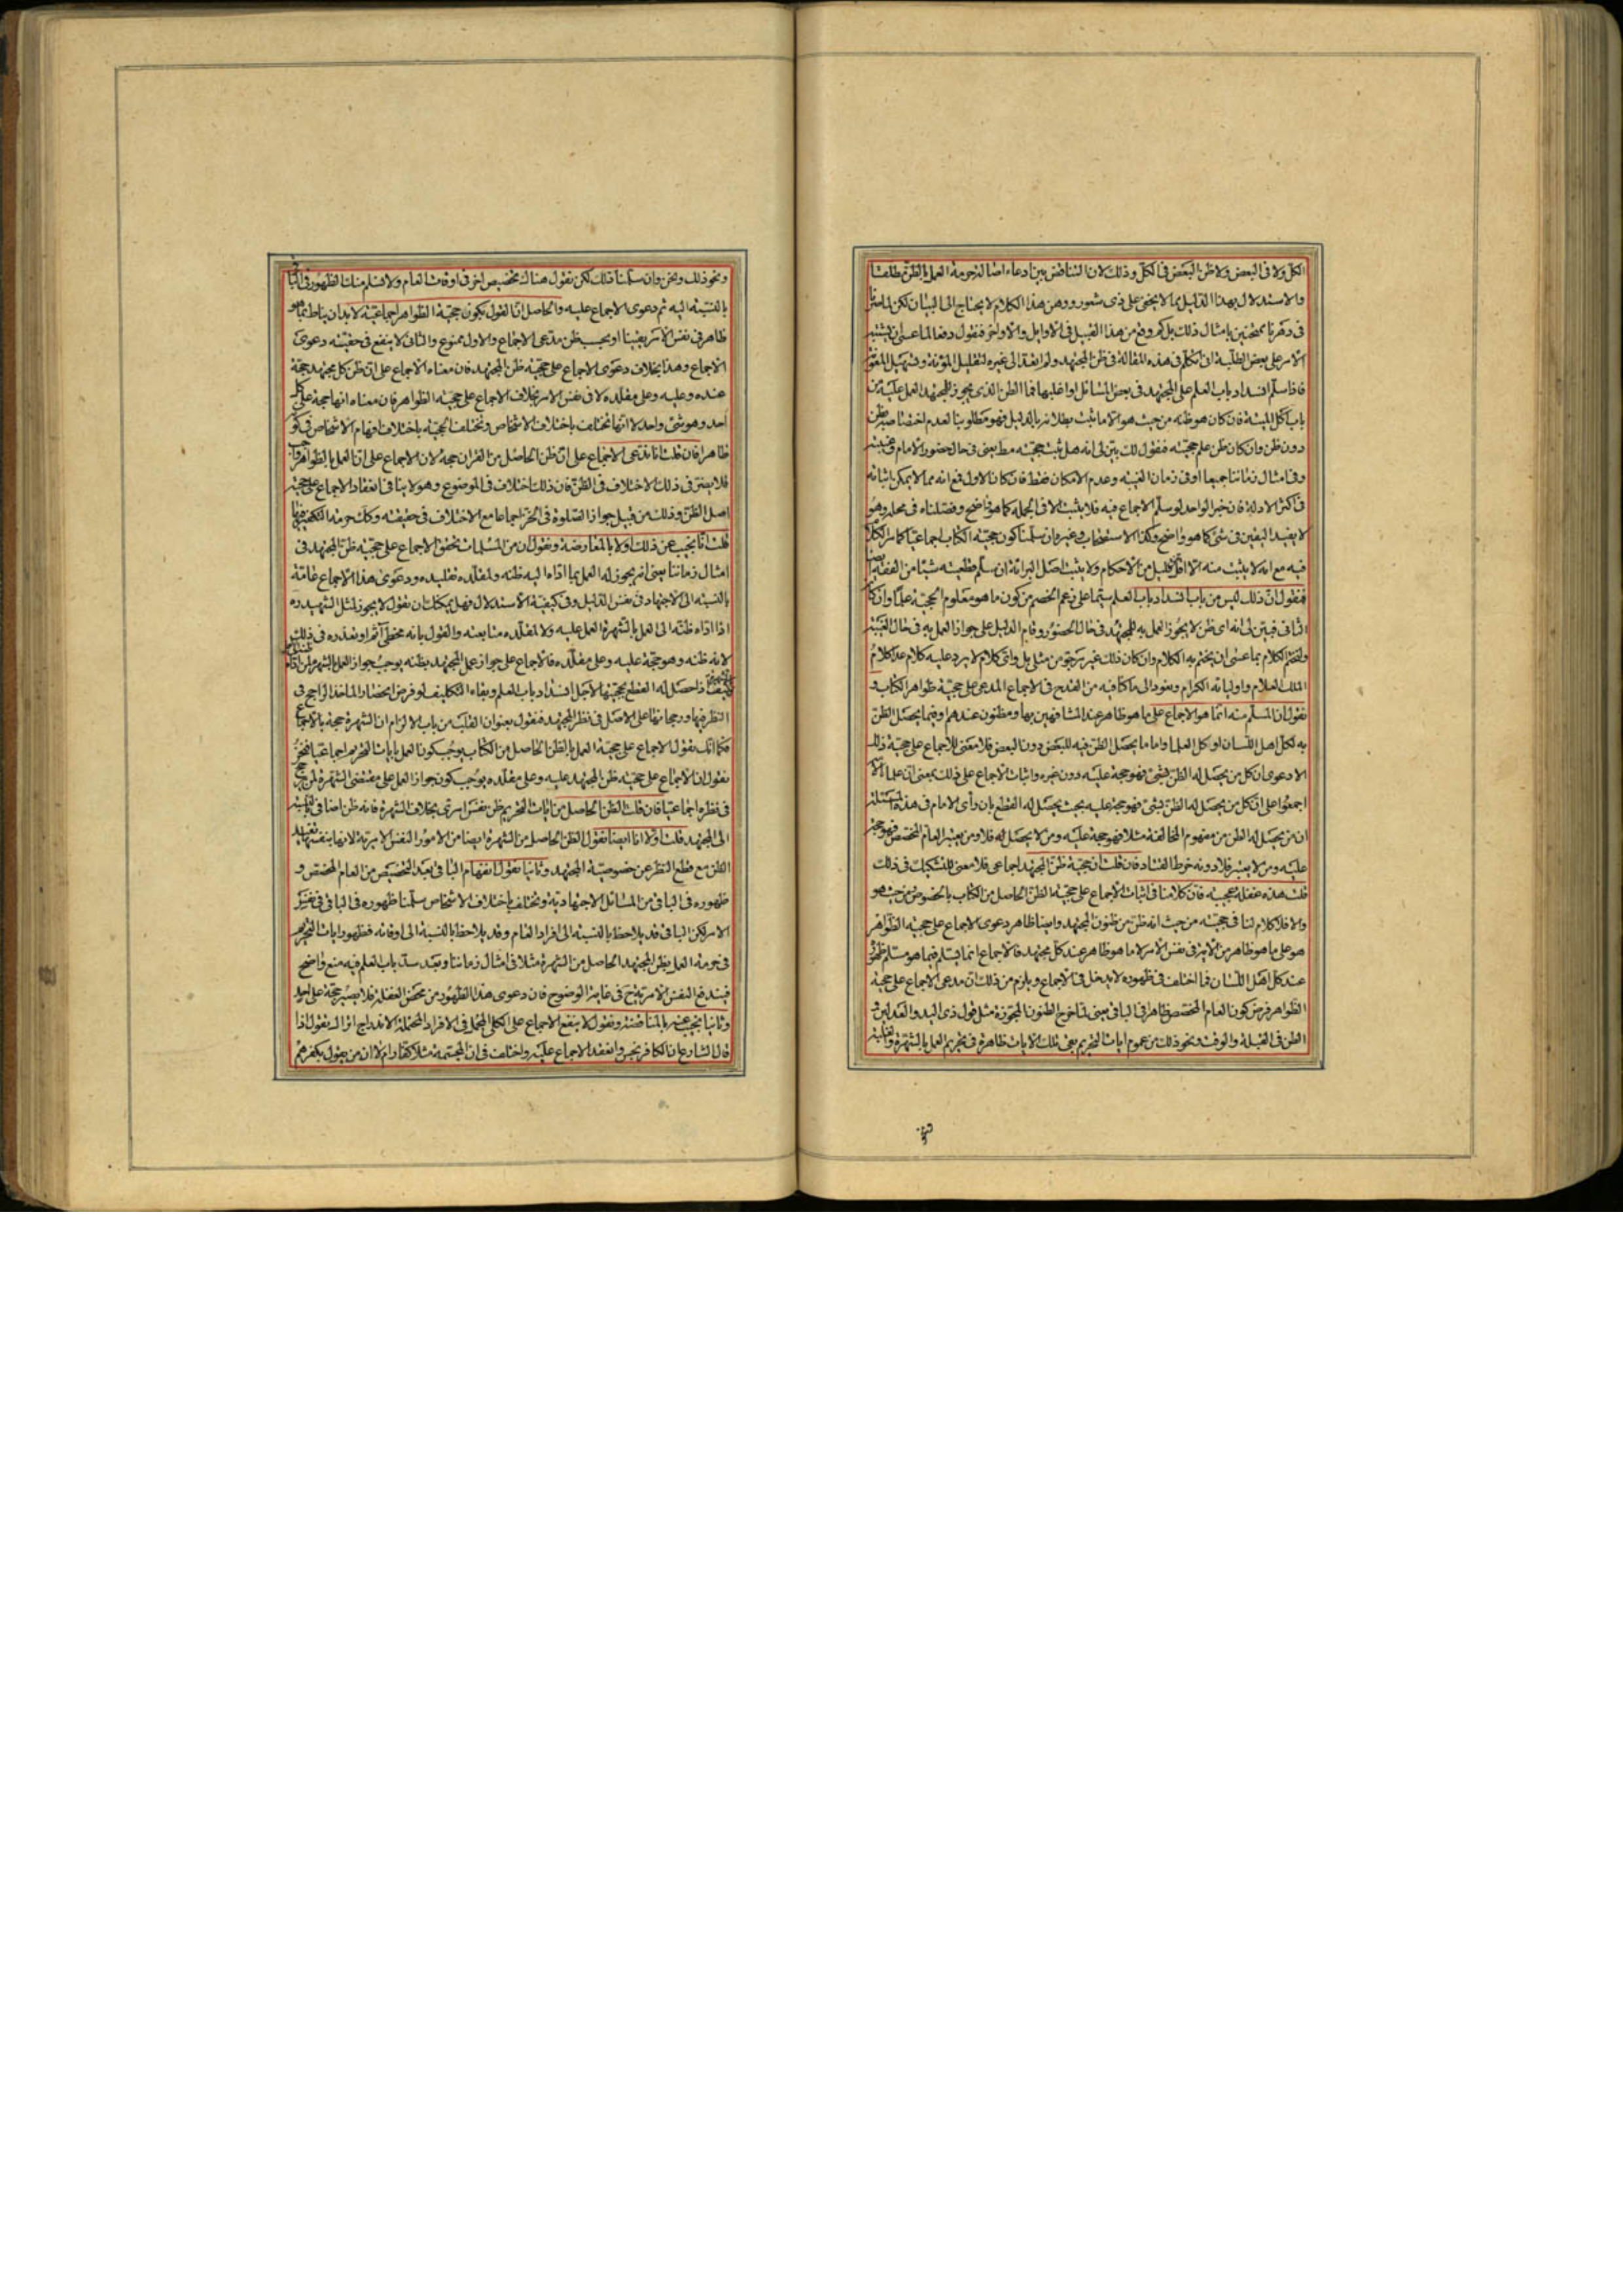 الكل ولا فى البعض ولا ظن البعض فى الكل وذلك لان التناقض بين ادعاء اصالة حرمة العمل بالظن مطلقا
والاستدلال بهذا الدليل مما لا يخفى على ذى شعور ووهن هذا الكلام لا يحتاج الى البيان لكن لما صرنا
فى دهرنا ممتحنين بامثال ذلك بل كم وقع من هذا القبيل فى الاوايل والاواخر فنقول دفعا لما عسى ان يشتبه
الامر على بعض الطلبة ان نتكلم فى هذه المقالة فى ظن المجتهد ولم نتعد الى غيره لتقليل المؤنة وتسهيل
فاذا سلم انسداد باب العلم على المجتهد فى بعض المسائل او اغلبها فما الظن الذى يجوز للمجتهد العمل عليه
باب اكل الميتة فان كان هو ظنه من حيث هو الا ما يثبت بطلانه بالدليل فهو مطلوبنا لعدم اختصاصه بظن
دون ظن وان كان ظن علم حجيته فنقول لك بين لى انه هل يثبت حجيته مط يعنى فى حال حضور الامام وغيبته
وفى امثال زماننا جميعا او فى زمان الغيبة وعدم الامكان فقط فان كان الاول فمع انه مما لا يمكن اثباته
فى اكثر الادلة فان خبر الواحد لو سلم الاجماع فيه فلا يثبت الا فى الجملة كما هو واضح وفصلناه فى محله وهو
لا يفيد اليقين فى شئ كما هو واضح وكذا الاستصحاب وغيره وان سلمنا كون حجية الكتاب اجماعيا كما مر الكلام
فيه مع انه لا يثبت منه الا اقل قليل من الاحكام ولا يثبت اصل البرائة ان سلم قطعيته شيئا من الفقه ايضا
فنقول ان ذلك ليس من باب انسداد باب العلم سيما على زعم الخصم من كون ما هو معلوم الحجية علما وان كان
الثانى فبين لى انه اى ظن لا يجوز العمل به للمجتهد فى حال الحضور وقام الدليل على جواز العمل به فى حال الغيبة
ولنختم الكلام بما عسى ان يختم به الكلام وان كان ذلك غير مرجو من مثلى بل واى كلام لا يرد عليه كلام عدا كلام
الملك العلام واوليائه الكرام ونعود الى ما كنا فيه من القدح فى الاجماع المدعى على حجية ظواهر الكتاب و
نقول ان المسلم منه انما هو الاجماع على ما هو ظاهر عند المشافهين بها ومظنون عندهم وفيما يحصل الظن
به لكل اهل اللسان او كل العلما واما ما يحصل الظن فيه للبعض دون البعض فلا معنى للاجماع على حجية ذلك
الا دعوى ان كل من يحصل له الظن بشئ فهو حجة عليه دون غيره واثبات الاجماع على ذلك بمعنى ان علماء الامة
اجمعوا على ان كل من يحصل له الظن بشئ فهو حجة عليه بحيث يحصل له القطع بان رأى الامام فى هذه المسئلة
ان من يحصل له الظن من مفهوم المخالفة مثلا فهو حجة عليه ومن لا يحصل له فلا ومن يعتبر العام المخصص فهو حجة
عليه ومن لا يعتبر فلا دونه خرط القتاد فان قلت ان حجية ظن المجتهد اجماعى فلا معنى للتشكيك فى ذلك
قلت هذه غفلة عجيبة فان كلامنا فى اثبات الاجماع على حجية الظن الحاصل من الكتاب بالخصوص من حيث هو
والا فلا كلام لنا فى حجيته من حيث انه ظن من ظنون المجتهد وايضا ظاهر دعوى الاجماع على حجية الظواهر
هو على ما هو ظاهر من الامر فى نفس الامر لا ما هو ظاهر عند كل مجتهد فالاجماع انما يسلم فيما هو مسلم ظهوره
عند كل اهل اللسان فما اختلف فى ظهوره لا يدخل فى الاجماع ويلزم من ذلك ان مدعى الاجماع على حجية
الظواهر فرض كون العام المخصص ظاهرا فى الباقى يعنى لما خرج الظنون المجوزة مثل قول ذى اليد والعدلين و
الظن فى القبلة والوقت ونحو ذلك من عموم ايات التحريم بقى تلك الايات ظاهرة فى تحريم العمل بالشهرة
ونحو ذلك ونحن وان سلمنا ذلك لكن نقول هناك تخصيص اخر فى اوقات العام ولا نسلم منك الظهور فى الباقى
بالنسبة اليه ثم دعوى الاجماع عليه والحاصل ان القول بكون حجية الظواهر اجماعية لابد ان يناط بما هو
ظاهر فى نفس الامر يقينا او بحسب ظن مدعى الاجماع والاول ممنوع والثانى لا ينفع فى حقيته دعوى
الاجماع وهذا بخلاف دعوى الاجماع على حجية ظن المجتهد فان معناه الاجماع على ان ظن كل مجتهد حجة
عنده وعليه وعلى مقلده لا فى نفس الامر بخلاف الاجماع على حجية الظواهر فان معناه انها حجة على كل
احد وهو شئ واحد لا انها تختلف باختلاف الاشخاص وتختلف الحجية باختلاف افهام الاشخاص فى كونه
ظاهرا فان قلت انا ندعى الاجماع على ان ظن الحاصل من القران حجة لان الاجماع على ان العمل بالظواهر واجب
فلا يضر فى ذلك الاختلاف فى الظن فان ذلك اختلاف فى الموضوع وهو لا ينافى انعقاد الاجماع على حجية
اصل الظن وذلك من قبيل جواز الصلوة فى الخز اجماعا مع الاختلاف فى حقيقته وكك حرمة
قلت انا نجيب عن ذلك اولا بالمعارضة ونقول ان من المسلمات تحقق الاجماع على حجية ظن المجتهد فى
امثال زماننا يعنى انه يجوز له العمل بما اداه اليه ظنه ولمقلده تقليده ودعوى هذا الاجماع عامة
بالنسبة الى الاجتهاد فى نفس الدليل وفى كيفية الاستدلال فهل يمكنك ان تقول لا يجوز لمثل الشهيد ره
اذا اداه ظنه الى العمل بالشهرة العمل عليه ولا لمقلده متابعته والقول بانه مخطئ آثم او نعذره فى ذلك
لانه ظنه وهو حجة عليه وعلى مقلده فالاجماع على جواز عمل المجتهد بظنه يوجب جواز العمل بالشهرة
اذا حصل له القطع بحجيتها لاجل انسداد باب العلم وبقاء التكليف لو فرض انحصار الماخذ الراجح فى
النظر فيها ورجحانها على الاصل فى نظر المجتهد فنقول بعنوان القلب من باب الالزام ان الشهرة حجة بالاجماع
فكما انك تقول الاجماع على حجية العمل بالظن الحاصل من الكتاب يوجب كون العمل بايات التحريم اجماعيا فنحن
نقول ان الاجماع على حجية ظن المجتهد عليه وعلى مقلده يوجب كون جواز العمل على مقتضى الشهرة لمن ترجح
فى نظره اجماعيا فان قلت الظن الحاصل من ايات التحريم ظن نفس امرى بخلاف الشهرة فانه ظن اضافى بالنسبة
الى المجتهد قلت اولا انا ايضا نقول الظن الحاصل من الشهرة ايضا من الامور النفس الامرية لانها بنفسها تفيد
الظن مع قطع النظر عن خصوصية المجتهد وثانيا نقول انفهام الباقى بعد التخصيص من العام المخصص و
ظهوره فى الباقى من المسائل الاجتهادية وتختلف باختلاف الاشخاص سلمنا ظهوره فى الباقى فى نفس
الامر لكن الباقى قد يلاحظ بالنسبة الى افراد العام وقد يلاحظ بالنسبة الى اوقاته فظهور ايات التحريم
فى حرمة العمل بظن المجتهد الحاصل من الشهرة مثلا فى امثال زماننا وبعد سد باب العلم فيه منع واضح
فيندفع النفس الامرية ح فى غاية الوضوح فان دعوى هذا الظهور من محض الغفلة فلا يصير حجة على احد
وثانيا نجيب عنه بالمناقضة ونقول لا ينفع الاجماع على الكلى المجمل فى الافراد المحتملة الاندراج اترا لك تقول اذا
قال الشارع ان الكافر نجس وانعقد الاجماع عليه واختلف فى ان المجسمة مثلا كفار ام لا ان من يقول بكفرهم